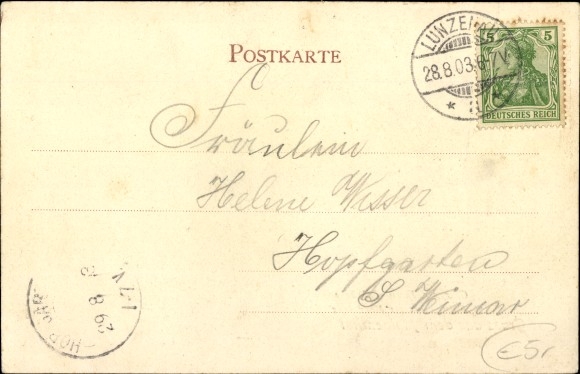 POSTKARTE
LUNZENAU
28.8.03.6-7V.
5 5
DEUTSCHES REICH
Fräulein
Helene Wisser
Hopfgarten
S. Weimar
29 8 03
€5,-